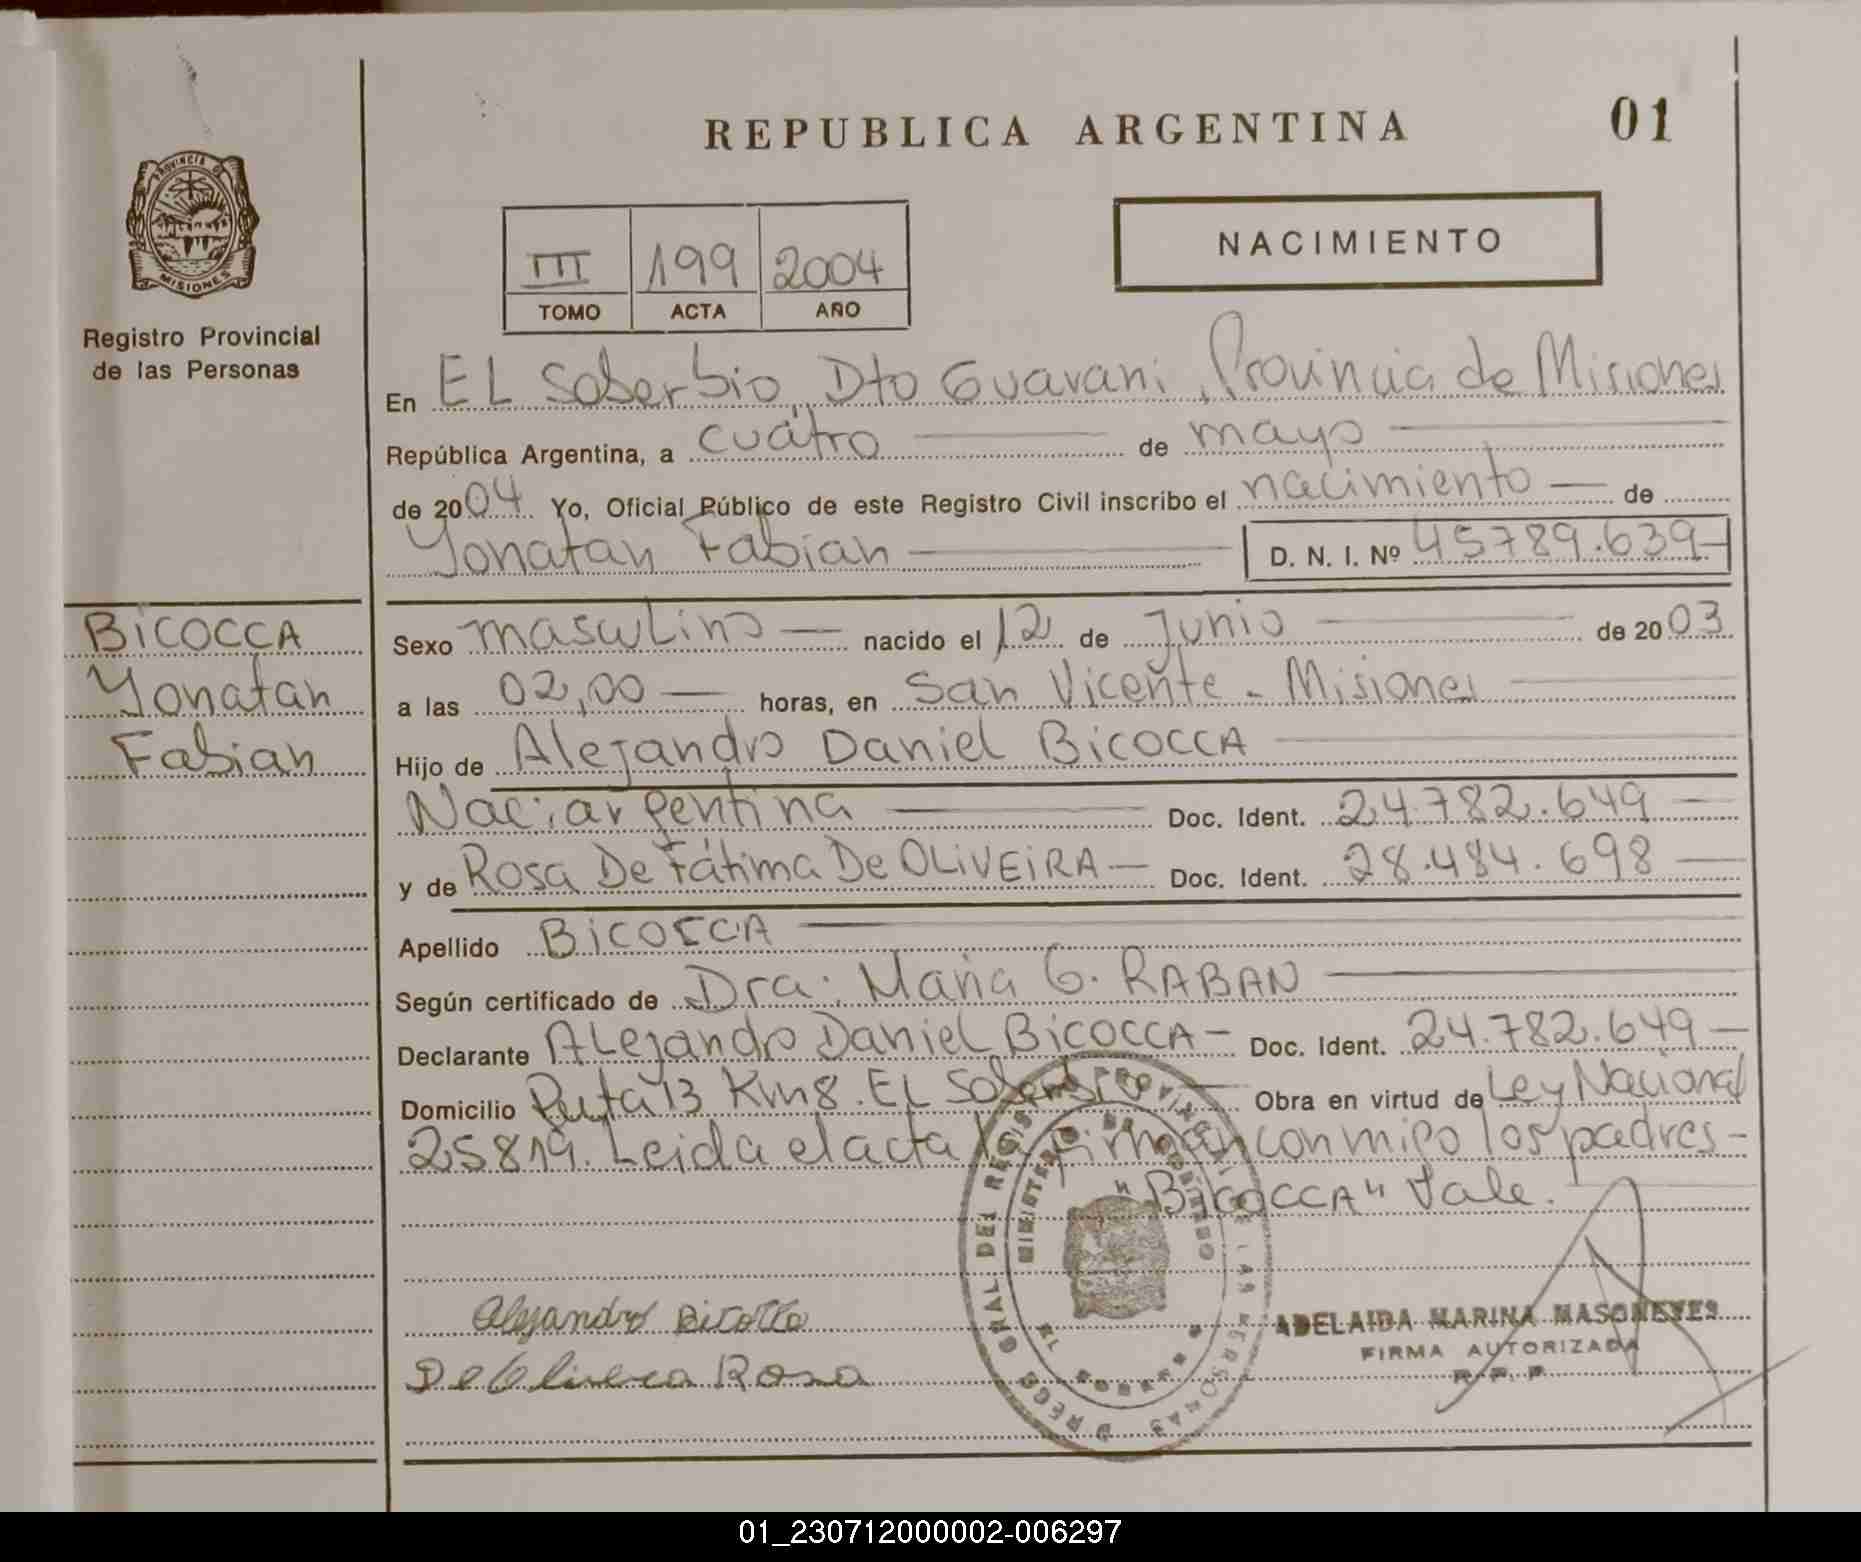 REPUBLICA ARGENTINA
01
PROVINCIA DE
MISIONES
Registro Provincial
de las Personas
III 199 2004
TOMO ACTA AÑO
NACIMIENTO
En EL Soberbio, Dto Guarani, Provincia de Misiones
República Argentina, a cuatro de mayo
de 2004 Yo, Oficial Público de este Registro Civil inscribo el nacimiento de
Yonatan Fabian D. N. I. Nº 45789.639
BiCOCCA
Yonatan
Fabian
Sexo masculino nacido el 12 de Junio de 2003
a las 02,00 horas, en San Vicente - Misiones
Hijo de Alejandro Daniel BiCOCCA
Nac: argentina Doc. Ident. 24.782.649
y de Rosa De Fátima De OLiVEiRA Doc. Ident. 28.484.698
Apellido BiCOCCA
Según certificado de Dra: Maria G. RABAN
Declarante ALejandro Daniel BiCOCCA Doc. Ident. 24.782.649
Domicilio Ruta 13 Km 8. EL Soberbio Obra en virtud de Ley Nacional
25819. Leida el acta la firman conmigo los padres
"BiCOCCA" Vale.
Alejandro Bicocca
De Oliveira Rosa
ADELAIDA MARINA
FIRMA AUTORIZADA
R. P. P.
01_230712000002-006297